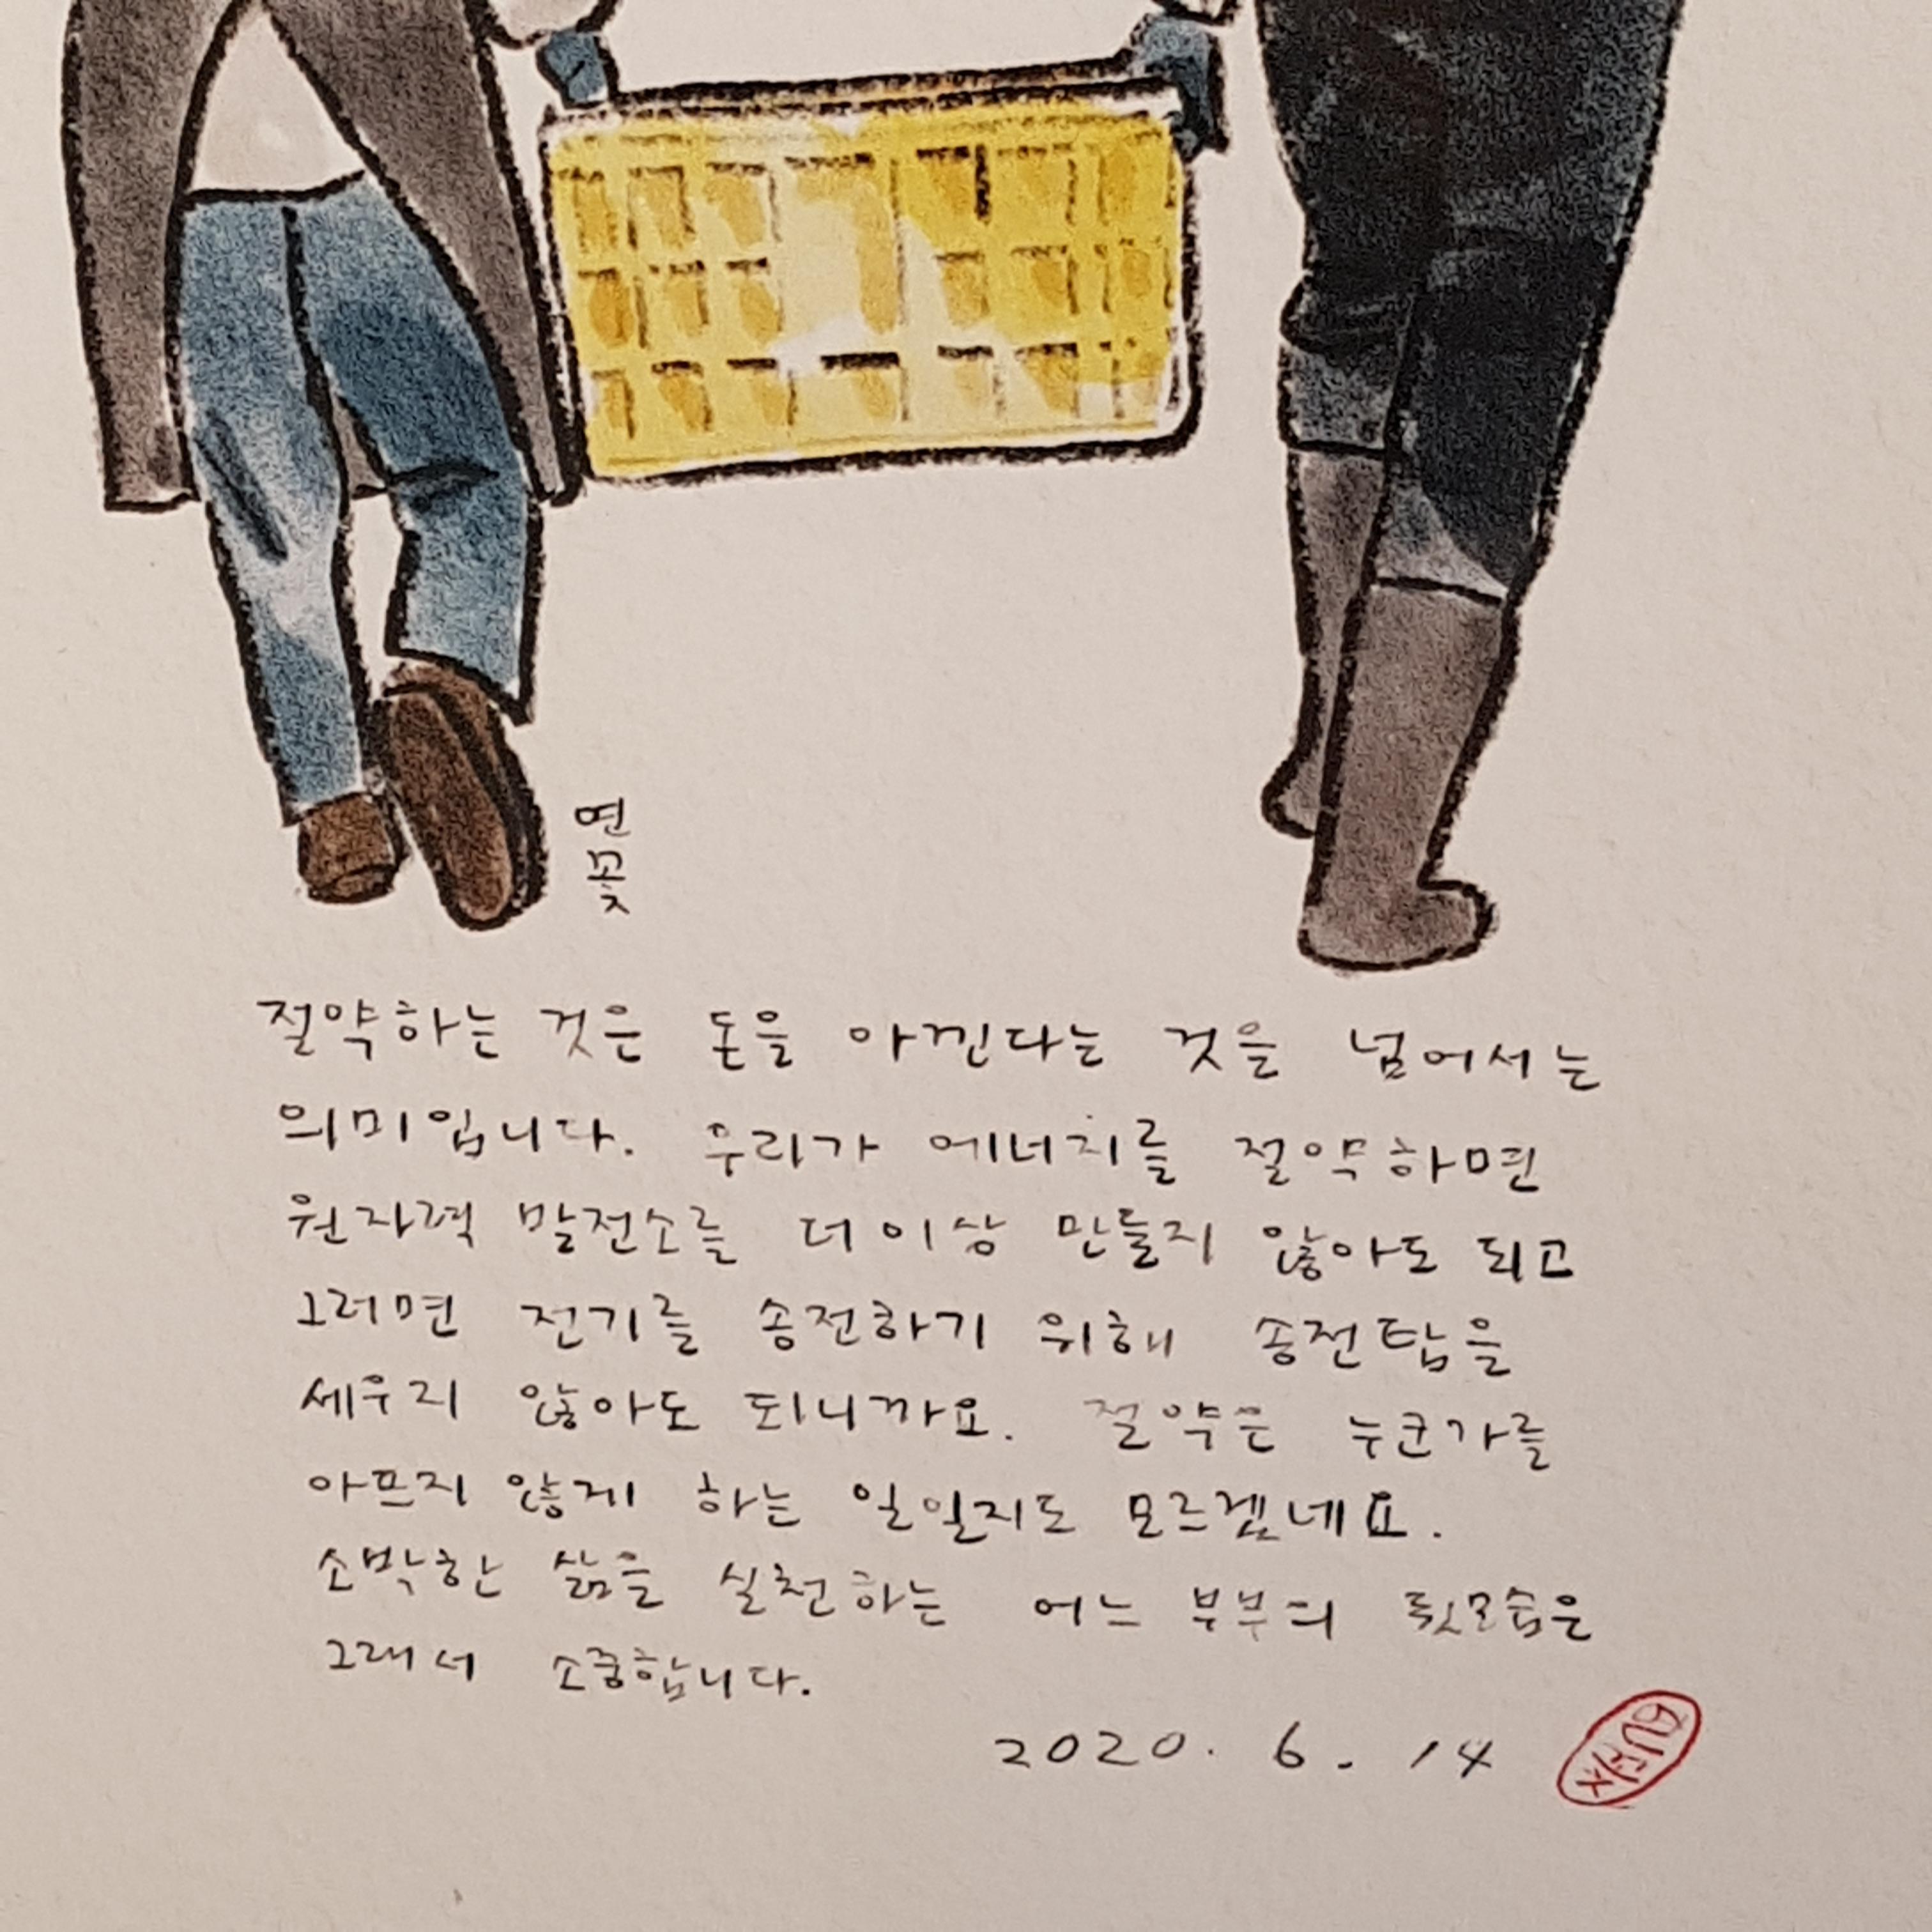 면
꽃
절약하는 것은 돈을 아낀다는 것을 넘어서는
의미입니다. 우리가 에너지를 절약하면
원자력 발전소를 더 이상 만들지 않아도 되고
그러면 전기를 송전하기 위해 송전탑을
세우지 않아도 되니까요. 절약은 누군가를
아프지 않게 하는 일일지도 모르겠네요.
소박한 삶을 실천하는 어느 부부의 뒷모습은
그래서 소중합니다.
2020. 6. 14